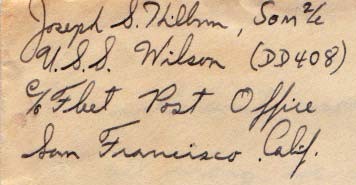 Joseph S. Thilbrn, Som 2/c
U.S.S. Wilson (DD408)
c/o Fleet Post Office
San Francisco Calif.